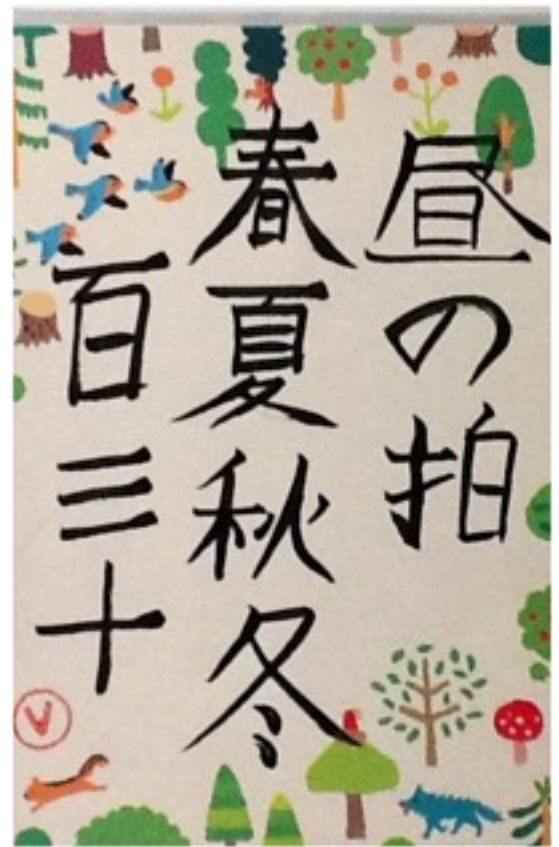 昼の拍
春夏秋冬
百三十
V